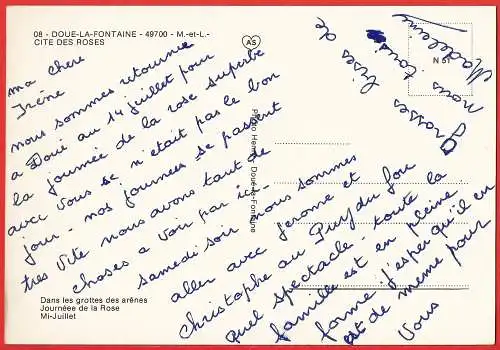 08 - DOUE-LA-FONTAINE - 49700 - M.-et-L.-
CITE DES ROSES
AS
N 51
ma chere
Irène
nous sommes retournée
a Doué au 14 juillet pour
la journée de la rose superbe
avec vous se n'etait pas le bon
jour - nos journées se passent
tres vite nous avons tant de
choses a voir par ici -
samedi soir nous sommes
aller avec Jerome et
christophe au Puy du fou
quel spectacle - toute la
famille est en pleine
forme j'esper qu'il en
est de meme pour
vous
grosses bises de
nous tous
Madeleine
Photo Doué-la-Fontaine
Dans les grottes des arênes
Journéee de la Rose
Mi-Juillet